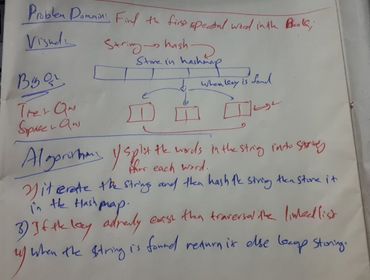 Problem Domain: Find the first repeated word in the Book.
Visual:
String → hash
Store in hashmap
Big O:
when key is found
Time: O(n)
Space: O(n)
Algorithm: 1) Split the words in the string into string
for each word.
2) iterate the string and then hash the string then store it
in the Hashmap.
3) If the key already exist then traversal the linked list
4) when the string is found return it else keep storing.